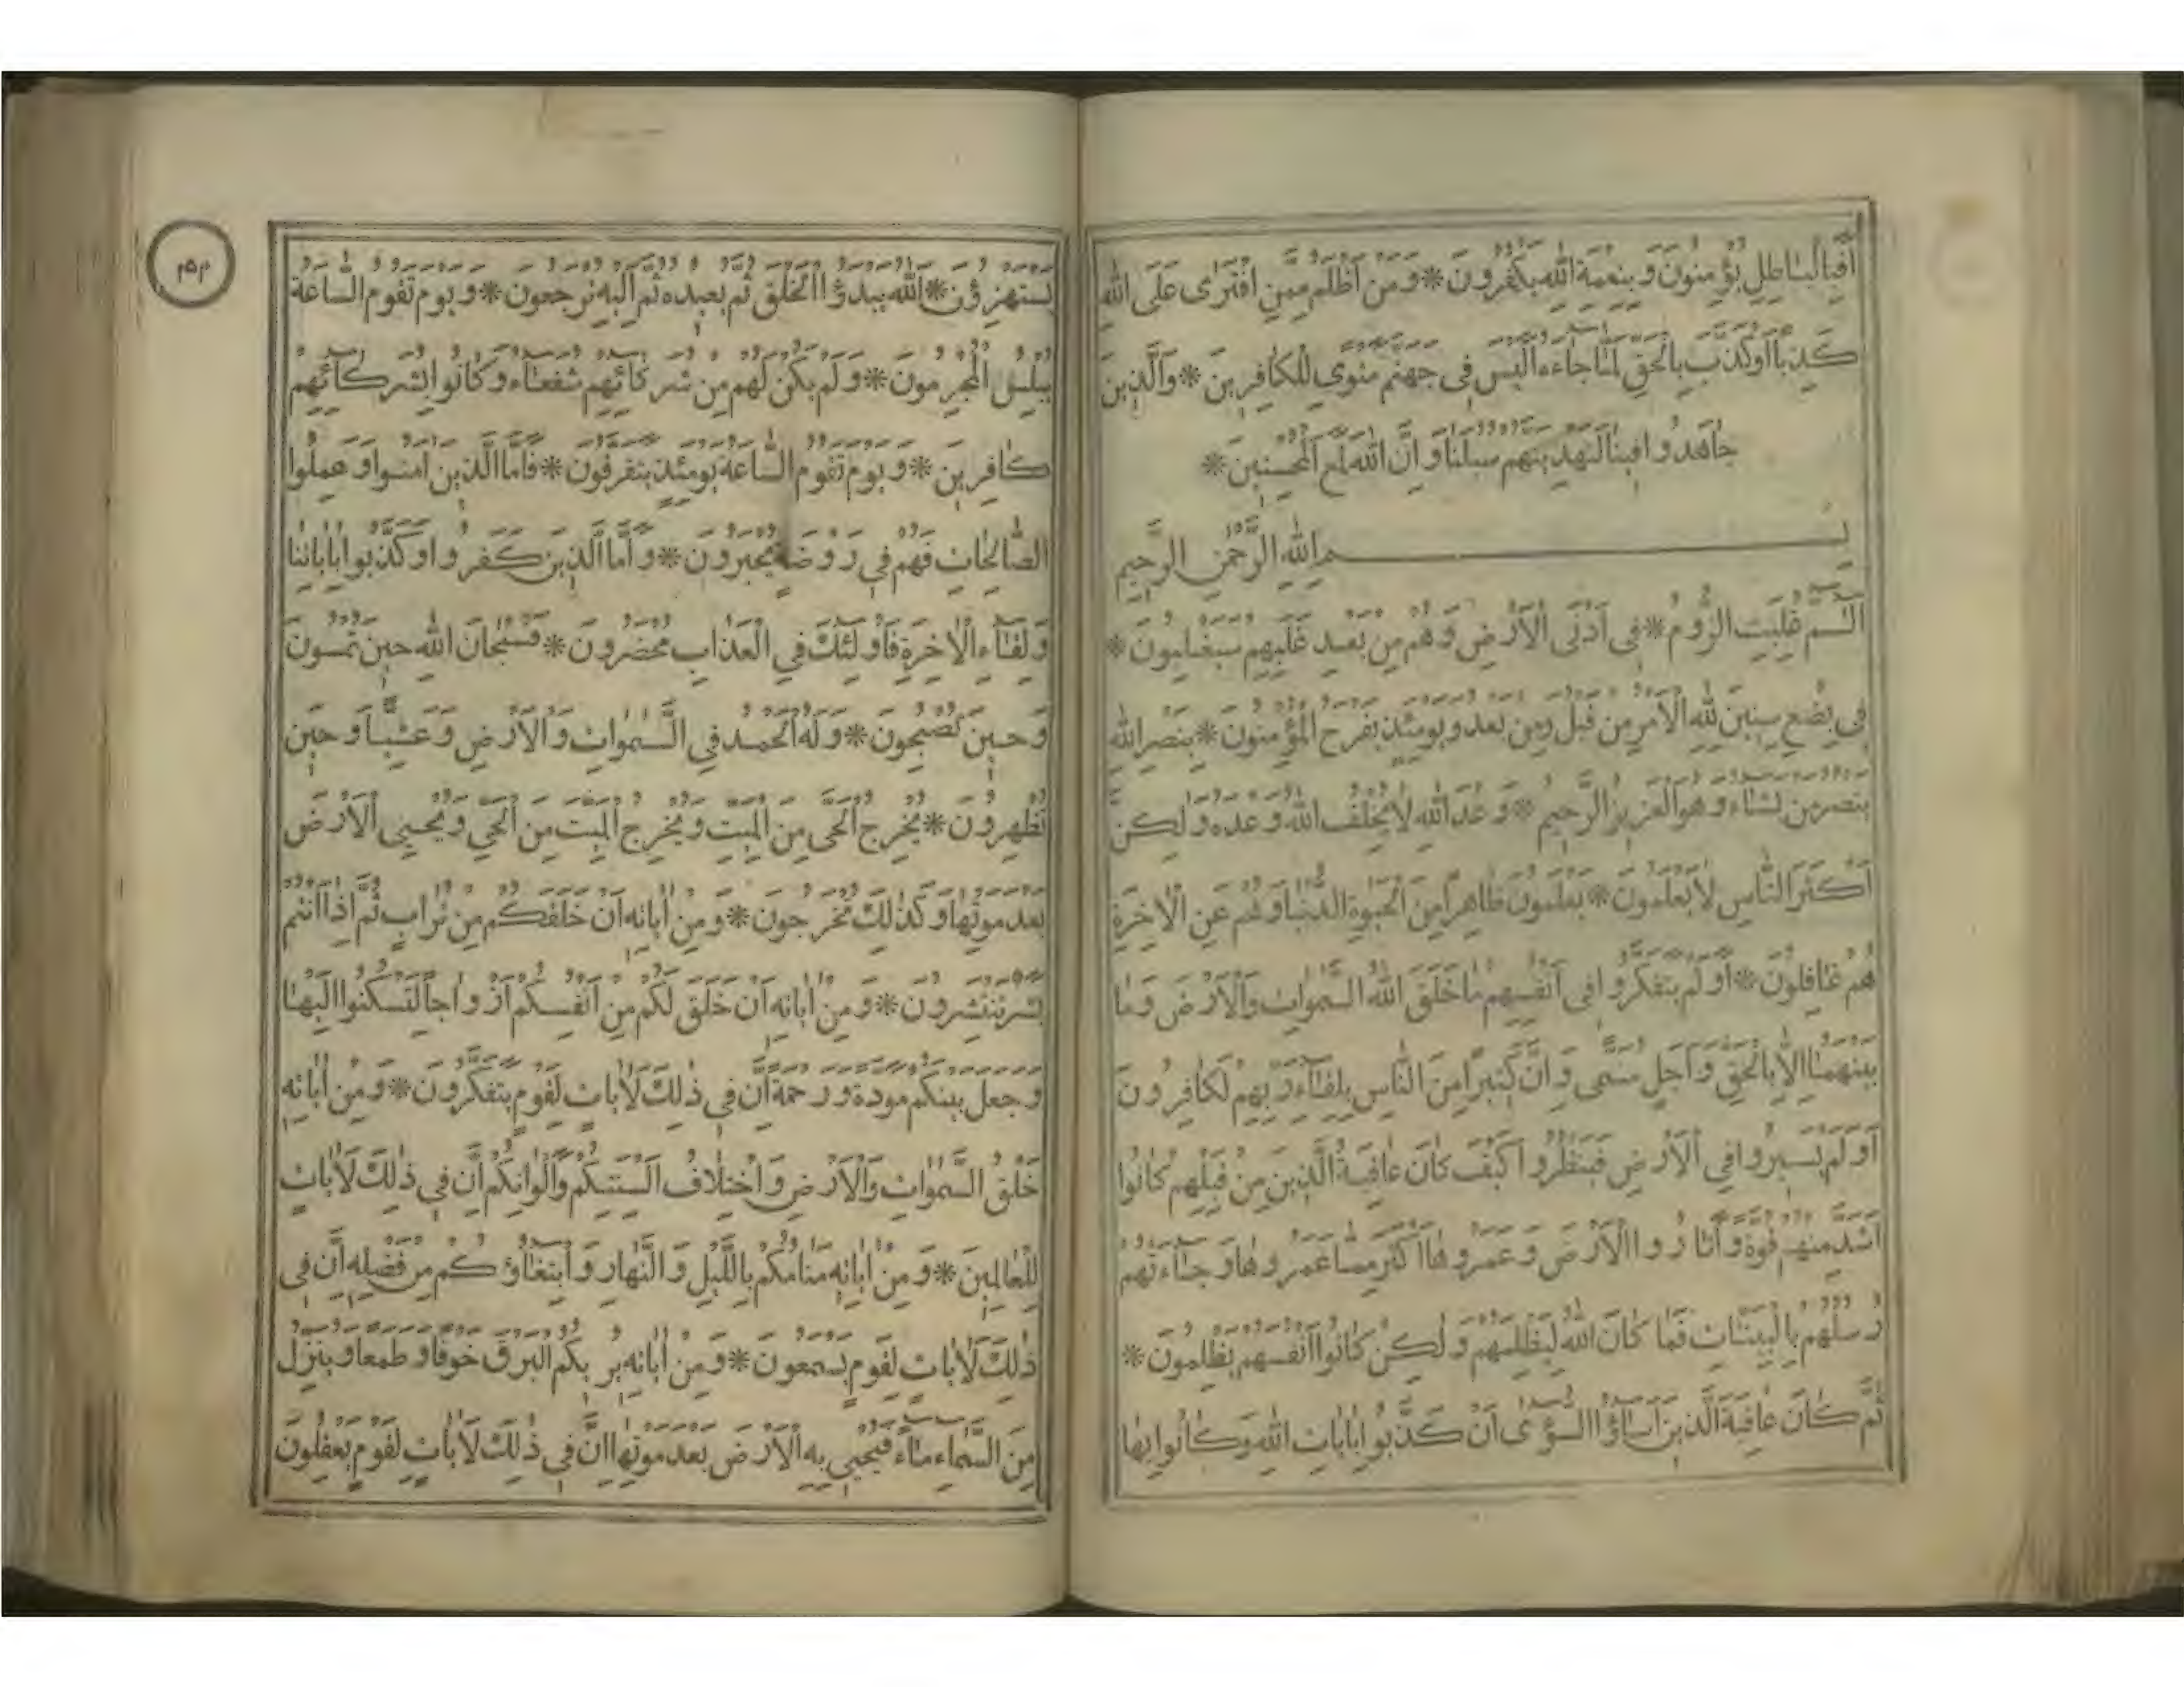 أَفَبِالْبَاطِلِ يُؤْمِنُونَ وَبِنِعْمَةِ اللَّهِ يَكْفُرُونَ * وَمَنْ أَظْلَمُ مِمَّنِ افْتَرَى عَلَى اللَّهِ
كَذِبًا أَوْ كَذَّبَ بِالْحَقِّ لَمَّا جَاءَهُ أَلَيْسَ فِي جَهَنَّمَ مَثْوًى لِلْكَافِرِينَ * وَالَّذِينَ
جَاهَدُوا فِينَا لَنَهْدِيَنَّهُمْ سُبُلَنَا وَإِنَّ اللَّهَ لَمَعَ الْمُحْسِنِينَ *
بِسْمِ اللَّهِ الرَّحْمَنِ الرَّحِيمِ
الٓمّٓ غُلِبَتِ الرُّومُ * فِي أَدْنَى الْأَرْضِ وَهُمْ مِنْ بَعْدِ غَلَبِهِمْ سَيَغْلِبُونَ *
فِي بِضْعِ سِنِينَ لِلَّهِ الْأَمْرُ مِنْ قَبْلُ وَمِنْ بَعْدُ وَيَوْمَئِذٍ يَفْرَحُ الْمُؤْمِنُونَ * بِنَصْرِ اللَّهِ
يَنْصُرُ مَنْ يَشَاءُ وَهُوَ الْعَزِيزُ الرَّحِيمُ * وَعْدَ اللَّهِ لَا يُخْلِفُ اللَّهُ وَعْدَهُ وَلَكِنَّ
أَكْثَرَ النَّاسِ لَا يَعْلَمُونَ * يَعْلَمُونَ ظَاهِرًا مِنَ الْحَيَوةِ الدُّنْيَا وَهُمْ عَنِ الْآخِرَةِ
هُمْ غَافِلُونَ * أَوَلَمْ يَتَفَكَّرُوا فِي أَنْفُسِهِمْ مَا خَلَقَ اللَّهُ السَّمَوَاتِ وَالْأَرْضَ وَمَا
بَيْنَهُمَا إِلَّا بِالْحَقِّ وَأَجَلٍ مُسَمًّى وَإِنَّ كَثِيرًا مِنَ النَّاسِ بِلِقَاءِ رَبِّهِمْ لَكَافِرُونَ
أَوَلَمْ يَسِيرُوا فِي الْأَرْضِ فَيَنْظُرُوا كَيْفَ كَانَ عَاقِبَةُ الَّذِينَ مِنْ قَبْلِهِمْ كَانُوا
أَشَدَّ مِنْهُمْ قُوَّةً وَأَثَارُوا الْأَرْضَ وَعَمَرُوهَا أَكْثَرَ مِمَّا عَمَرُوهَا وَجَاءَتْهُمْ
رُسُلُهُمْ بِالْبَيِّنَاتِ فَمَا كَانَ اللَّهُ لِيَظْلِمَهُمْ وَلَكِنْ كَانُوا أَنْفُسَهُمْ يَظْلِمُونَ *
ثُمَّ كَانَ عَاقِبَةَ الَّذِينَ أَسَاؤُا السُّوأَى أَنْ كَذَّبُوا بِآيَاتِ اللَّهِ وَكَانُوا بِهَا
يَسْتَهْزِؤُنَ * اللَّهُ يَبْدَؤُا الْخَلْقَ ثُمَّ يُعِيدُهُ ثُمَّ إِلَيْهِ تُرْجَعُونَ * وَيَوْمَ تَقُومُ السَّاعَةُ
يُبْلِسُ الْمُجْرِمُونَ * وَلَمْ يَكُنْ لَهُمْ مِنْ شُرَكَائِهِمْ شُفَعَاءُ وَكَانُوا بِشُرَكَائِهِمْ
كَافِرِينَ * وَيَوْمَ تَقُومُ السَّاعَةُ يَوْمَئِذٍ يَتَفَرَّقُونَ * فَأَمَّا الَّذِينَ آمَنُوا وَعَمِلُوا
الصَّالِحَاتِ فَهُمْ فِي رَوْضَةٍ يُحْبَرُونَ * وَأَمَّا الَّذِينَ كَفَرُوا وَكَذَّبُوا بِآيَاتِنَا
وَلِقَاءِ الْآخِرَةِ فَأُولَئِكَ فِي الْعَذَابِ مُحْضَرُونَ * فَسُبْحَانَ اللَّهِ حِينَ تُمْسُونَ
وَحِينَ تُصْبِحُونَ * وَلَهُ الْحَمْدُ فِي السَّمَوَاتِ وَالْأَرْضِ وَعَشِيًّا وَحِينَ
تُظْهِرُونَ * يُخْرِجُ الْحَيَّ مِنَ الْمَيِّتِ وَيُخْرِجُ الْمَيِّتَ مِنَ الْحَيِّ وَيُحْيِي الْأَرْضَ
بَعْدَ مَوْتِهَا وَكَذَلِكَ تُخْرَجُونَ * وَمِنْ آيَاتِهِ أَنْ خَلَقَكُمْ مِنْ تُرَابٍ ثُمَّ إِذَا أَنْتُمْ
بَشَرٌ تَنْتَشِرُونَ * وَمِنْ آيَاتِهِ أَنْ خَلَقَ لَكُمْ مِنْ أَنْفُسِكُمْ أَزْوَاجًا لِتَسْكُنُوا إِلَيْهَا
وَجَعَلَ بَيْنَكُمْ مَوَدَّةً وَرَحْمَةً إِنَّ فِي ذَلِكَ لَآيَاتٍ لِقَوْمٍ يَتَفَكَّرُونَ * وَمِنْ آيَاتِهِ
خَلْقُ السَّمَوَاتِ وَالْأَرْضِ وَاخْتِلَافُ أَلْسِنَتِكُمْ وَأَلْوَانِكُمْ إِنَّ فِي ذَلِكَ لَآيَاتٍ
لِلْعَالِمِينَ * وَمِنْ آيَاتِهِ مَنَامُكُمْ بِاللَّيْلِ وَالنَّهَارِ وَابْتِغَاؤُكُمْ مِنْ فَضْلِهِ إِنَّ فِي
ذَلِكَ لَآيَاتٍ لِقَوْمٍ يَسْمَعُونَ * وَمِنْ آيَاتِهِ يُرِيكُمُ الْبَرْقَ خَوْفًا وَطَمَعًا وَيُنَزِّلُ
مِنَ السَّمَاءِ مَاءً فَيُحْيِي بِهِ الْأَرْضَ بَعْدَ مَوْتِهَا إِنَّ فِي ذَلِكَ لَآيَاتٍ لِقَوْمٍ يَعْقِلُونَ